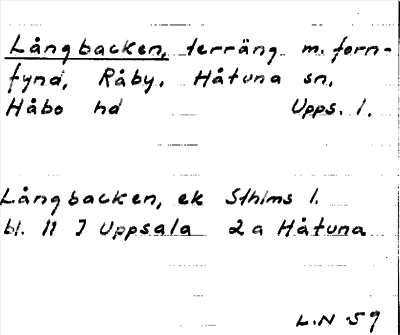 Långbacken, terräng m. forn-
fynd, Råby. Håtuna sn.
Håbo hd Upps. l.
Långbacken, ek Sthlms l.
bl. 11 J Uppsala 2 a Håtuna
L.N 59